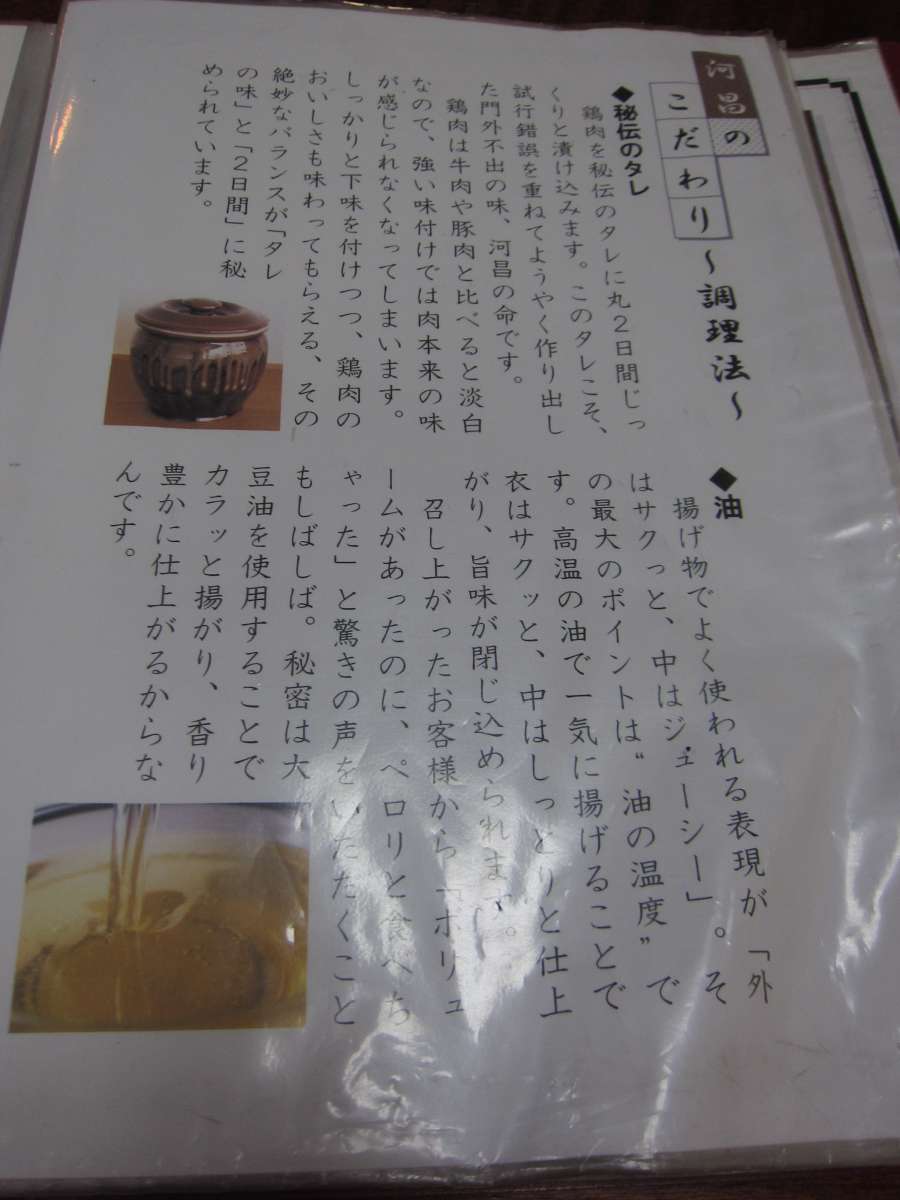 河昌の
こだわり
～調理法～
◆秘伝のタレ
鶏肉を秘伝のタレに丸２日間じっ
くりと漬け込みます。このタレこそ、
試行錯誤を重ねてようやく作り出し
た門外不出の味、河昌の命です。
鶏肉は牛肉や豚肉と比べると淡白
なので、強い味付けでは肉本来の味
が感じられなくなってしまいます。
しっかりと下味を付けつつ、鶏肉の
おいしさも味わってもらえる、その
絶妙なバランスが「タレ
の味」と「２日間」に秘
められています。
◆油
揚げ物でよく使われる表現が、「外
はサクっと、中はジューシー」。そ
の最大のポイントは“油の温度”で
す。高温の油で一気に揚げることで
衣はサクッと、中はしっとりと仕上
がり、旨味が閉じ込められます。
召し上がったお客様から「ボリュ
ームがあったのに、ペロリと食べち
ゃった」と驚きの声をいただくこと
もしばしば。秘密は大
豆油を使用することで
カラッと揚がり、香り
豊かに仕上がるからな
んです。